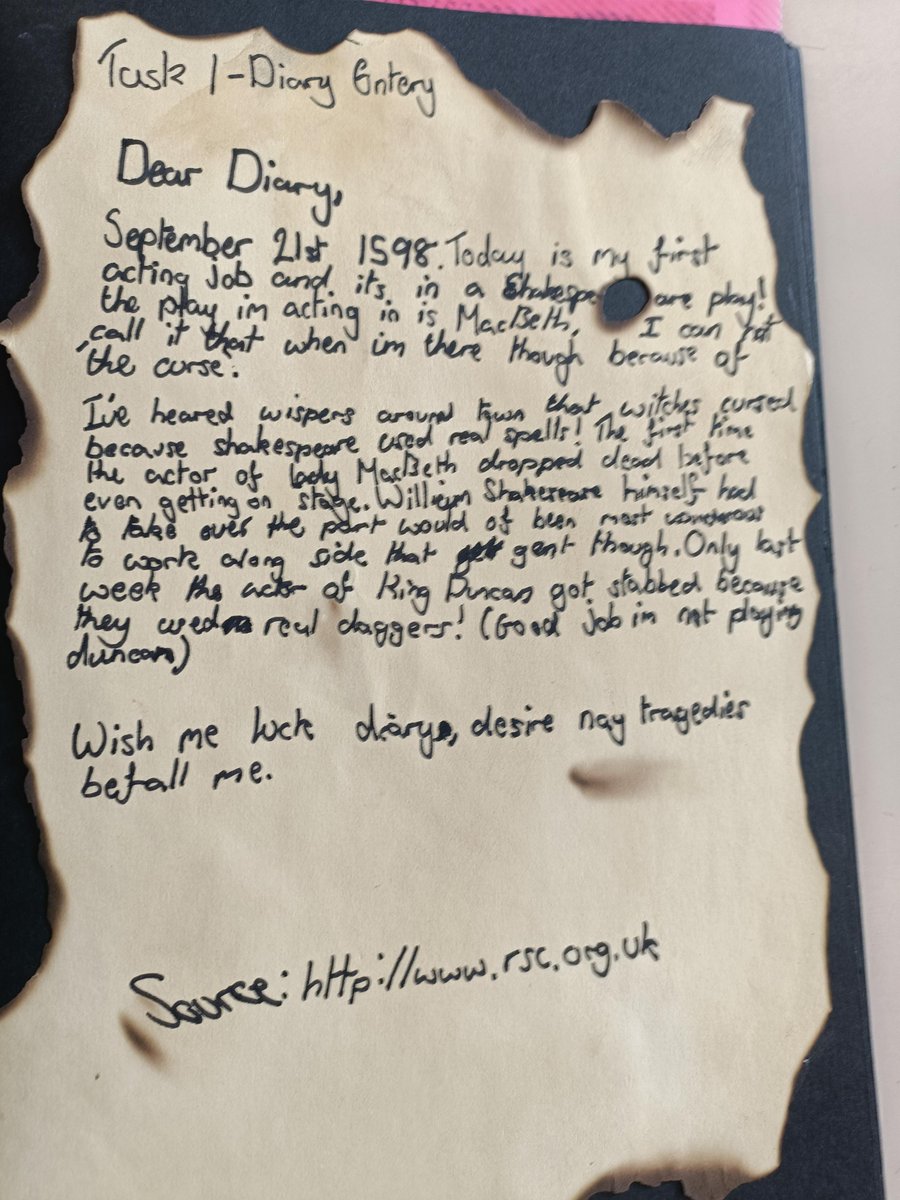 Task 1-Diary Entery
Dear Diary,
September 21st 1598. Today is my first
acting job and its in a Shakespeare play!
the play im acting in is MacBeth, I can not
call it that when im there though because of
'the curse'.
I've heared wispers around town that witches cursed
because shakespeare used real spells! The first time
the actor of lady MacBeth dropped dead before
even getting on stage. William Shakesreare himself had
to take over the part would of been most wonderous
to work along side that gent though. Only last
week the actor of King Duncan got stabbed because
they used real daggers! (Good job im not playing
duncan)
Wish me luck diary, desire nay tragedies
befall me.
Source: http://www.rsc.org.uk